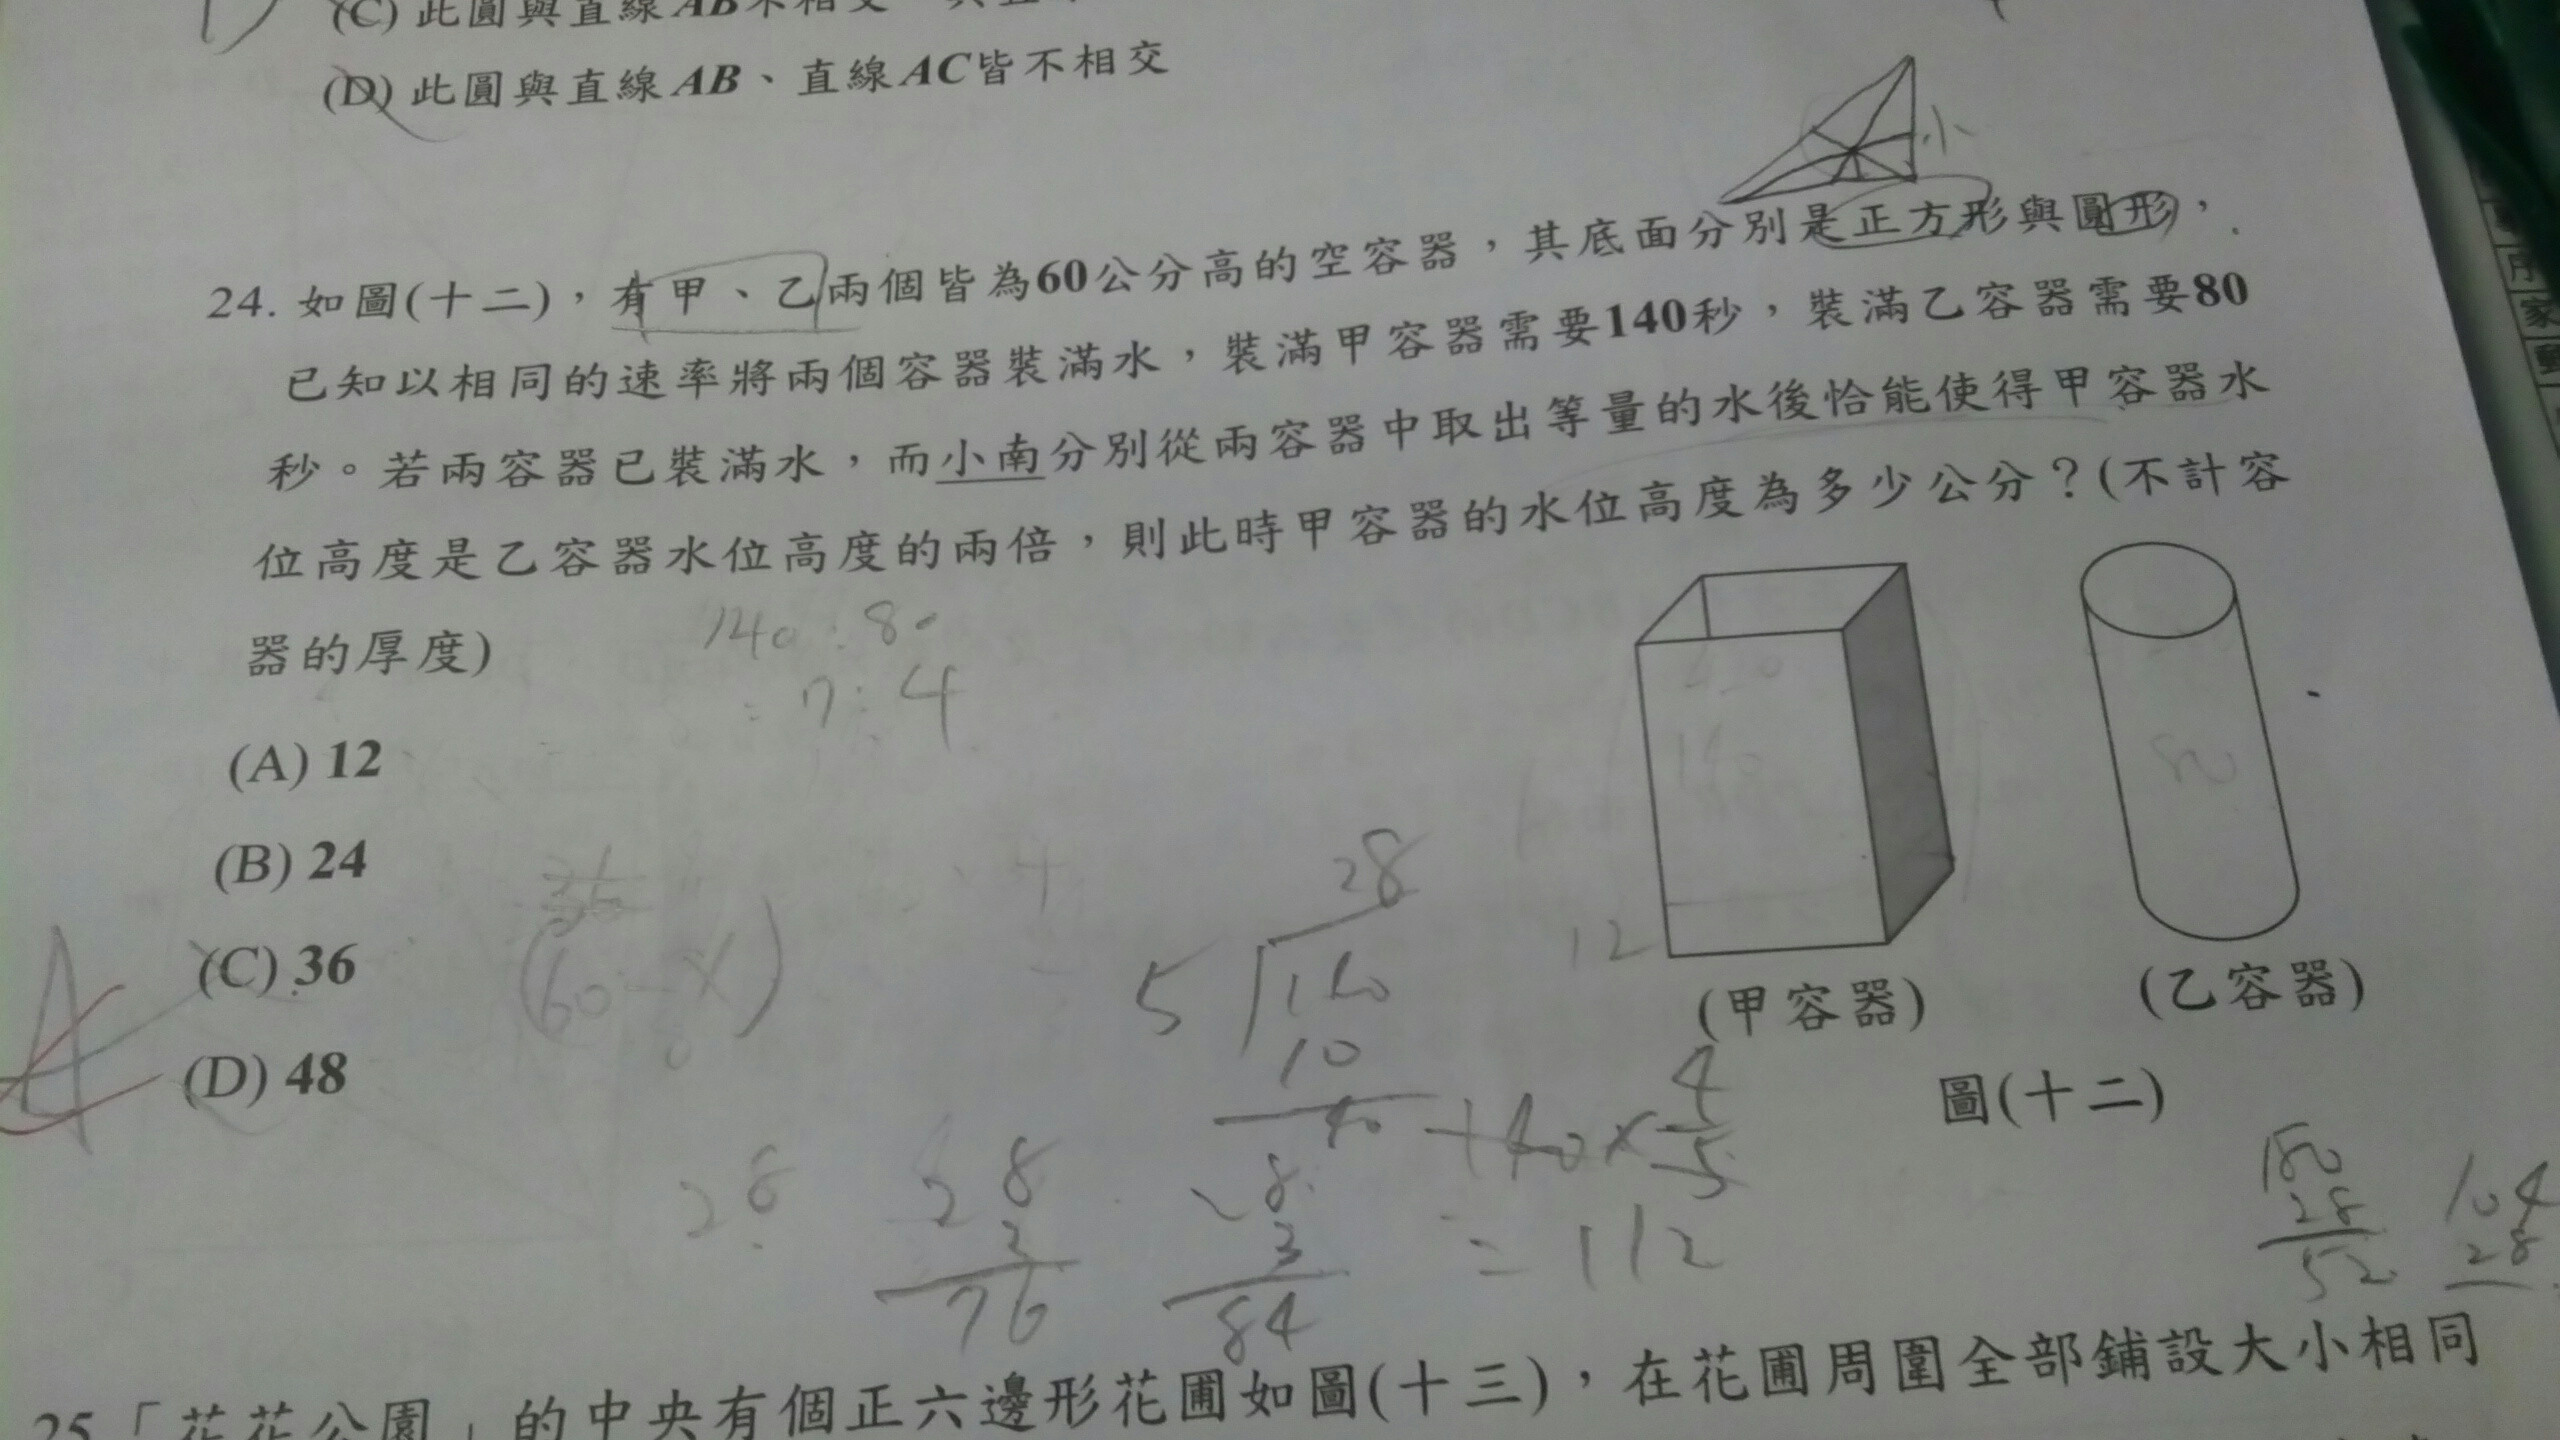 (C) 此圓與直線AB不相交
(D) 此圓與直線AB、直線AC皆不相交
小
24. 如圖(十二)，有甲、乙兩個皆為60公分高的空容器，其底面分別是正方形與圓形，
已知以相同的速率將兩個容器裝滿水，裝滿甲容器需要140秒，裝滿乙容器需要80
秒。若兩容器已裝滿水，而小南分別從兩容器中取出等量的水後恰能使得甲容器水
位高度是乙容器水位高度的兩倍，則此時甲容器的水位高度為多少公分？(不計容
器的厚度)
140:80
:7:4
(A) 12
(B) 24
(C) 36
(D) 48
A
36
(60-x)
28
5 140
10
40
+40×4/5
=112
28
28
3
76
28
3
84
140
80
12
(甲容器)
(乙容器)
圖(十二)
28
52
104
28
25「花花公園」的中央有個正六邊形花圃如圖(十三)，在花圃周圍全部鋪設大小相同